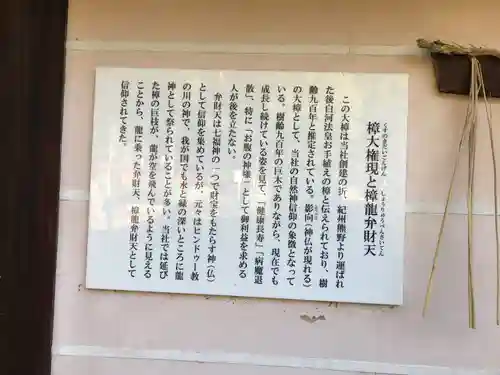 樟大権現と樟龍弁財天
くすのきだいごんげん
しょうりゅうべんざいてん
この大樟は当社創建の折、紀州熊野より運ばれ
た後白河法皇お手植えの樟と伝えられており、樹
齢九百年と推定されている。影向(神仏が現れる)
ようごう
の大樟として、当社の自然神信仰の象徴となって
いる。樹齢九百年の巨木でありながら、現在でも
成長し続けている姿を見て、「健康長寿」「病魔退
散」、特に「お腹の神様」として御利益を求める
人が後を立たない。
弁財天は七福神の一つで財宝をもたらす神(仏)
として信仰を集めているが、元々はヒンドゥー教
の川の神で、我が国でも水と縁の深いところに龍
神として祭られていることが多い。当社では延び
た樟の巨枝が、龍が空を飛んでいるように見える
ことから、龍に乗った弁財天、樟龍弁財天として
信仰されてきた。